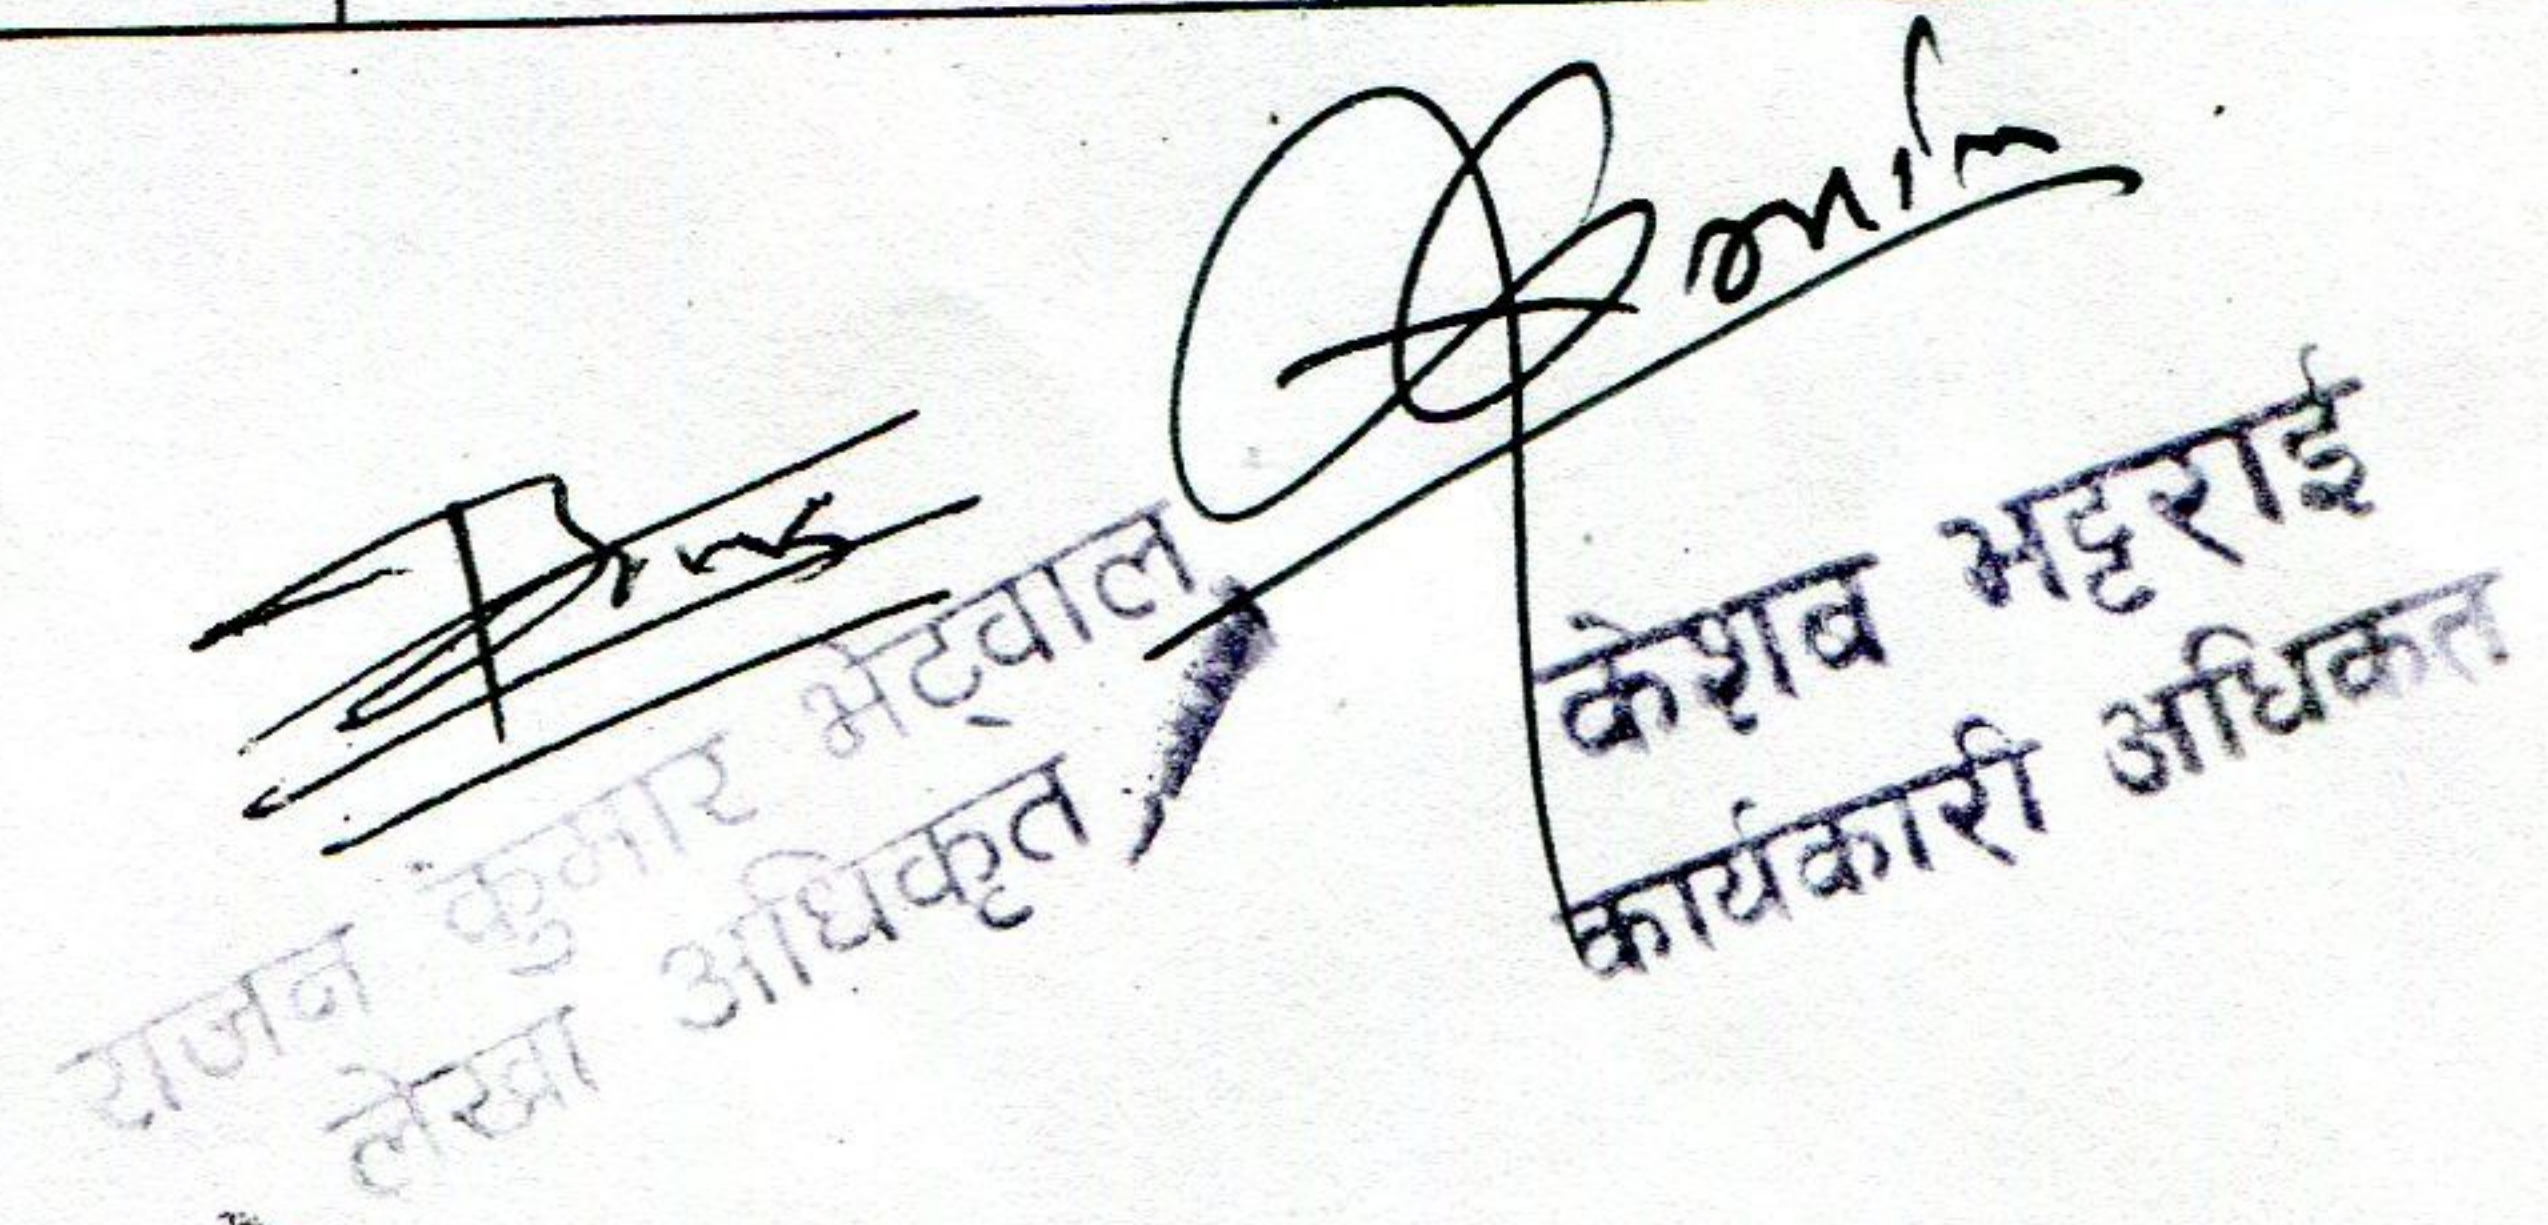 राजन कुमार भेट्वाल
लेखा अधिकृत
केशव भट्टराई
कार्यकारी अधिकृत